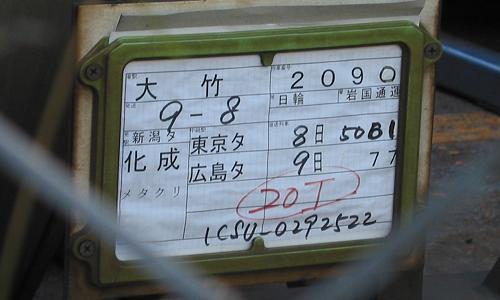 大竹 2090
9-8 日輪 岩国通運
新潟タ 東京タ 8日 50B1
化成 広島タ 9日 77
メタクリ
20T
ICSU-0292522